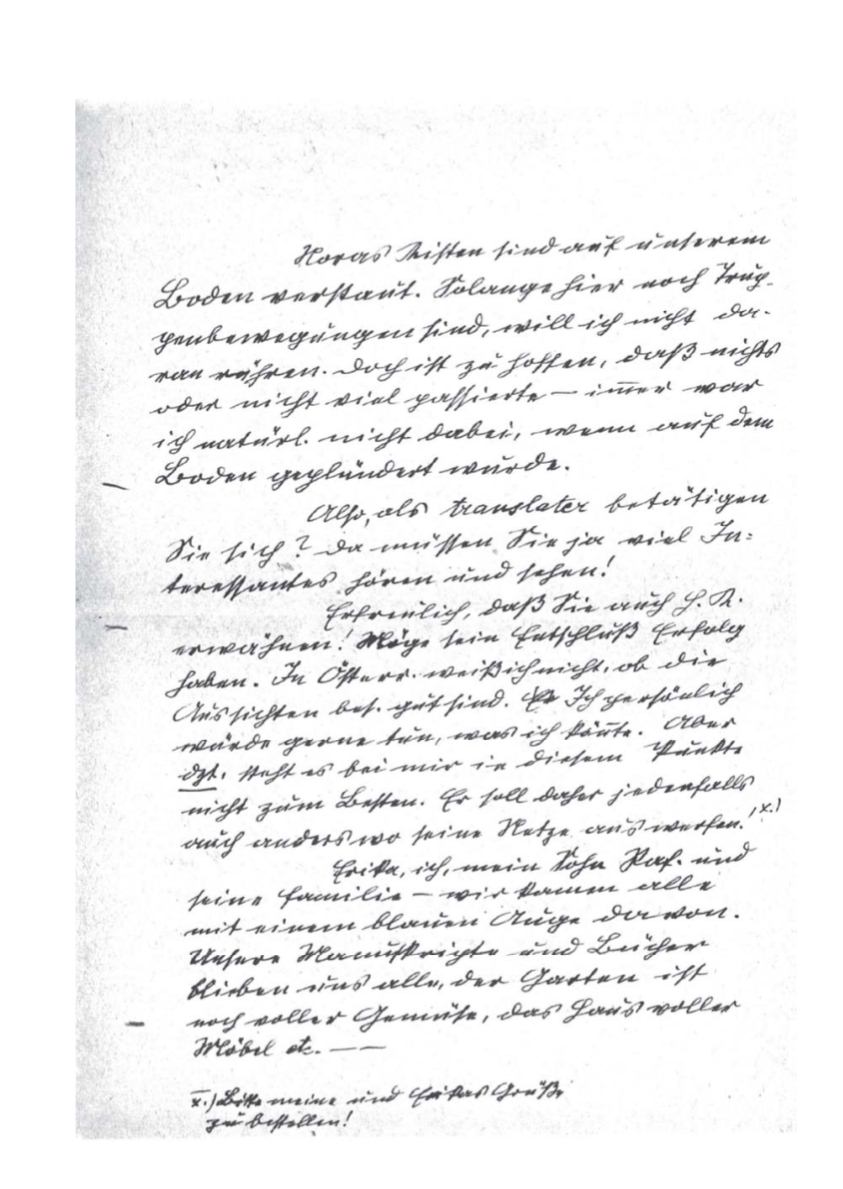 Noras Kisten sind auf unserem
Boden verstaut. Solange hier noch Trup-
penbewegungen sind, will ich nicht da-
ran rühren. Doch ist zu hoffen, daß nichts
oder nicht viel passierte – im̅er war
ich natürl. nicht dabei, wenn auf dem
Boden geplündert wurde.
Also, als translater betätigen
Sie sich? Da müssen Sie ja viel In=
teressantes hören und sehen!
Erfreulich, daß Sie auch H. K.
erwähnen! Möge sein Entschluß Erfolg
haben. In Österr. weiß ich nicht, ob die
Aussichten bes. gut sind. Ich persönlich
würde gerne tun, was ich kön̅te. Aber
dzt. steht es bei mir in diesem Punkte
nicht zum Besten. Er soll daher jedenfalls
auch anderswo seine Netze auswerfen! x.)
Erika, ich, mein Sohn Raf. und
seine Familie – wir kamen alle
mit einem blauen Auge davon.
Unsere Manuskripte und Bücher
blieben uns alle, der Garten ist
noch voller Gemüse, das Haus voller
Möbel etc. — —
x.) Bitte meine und Erikas Grüße
zu bestellen!